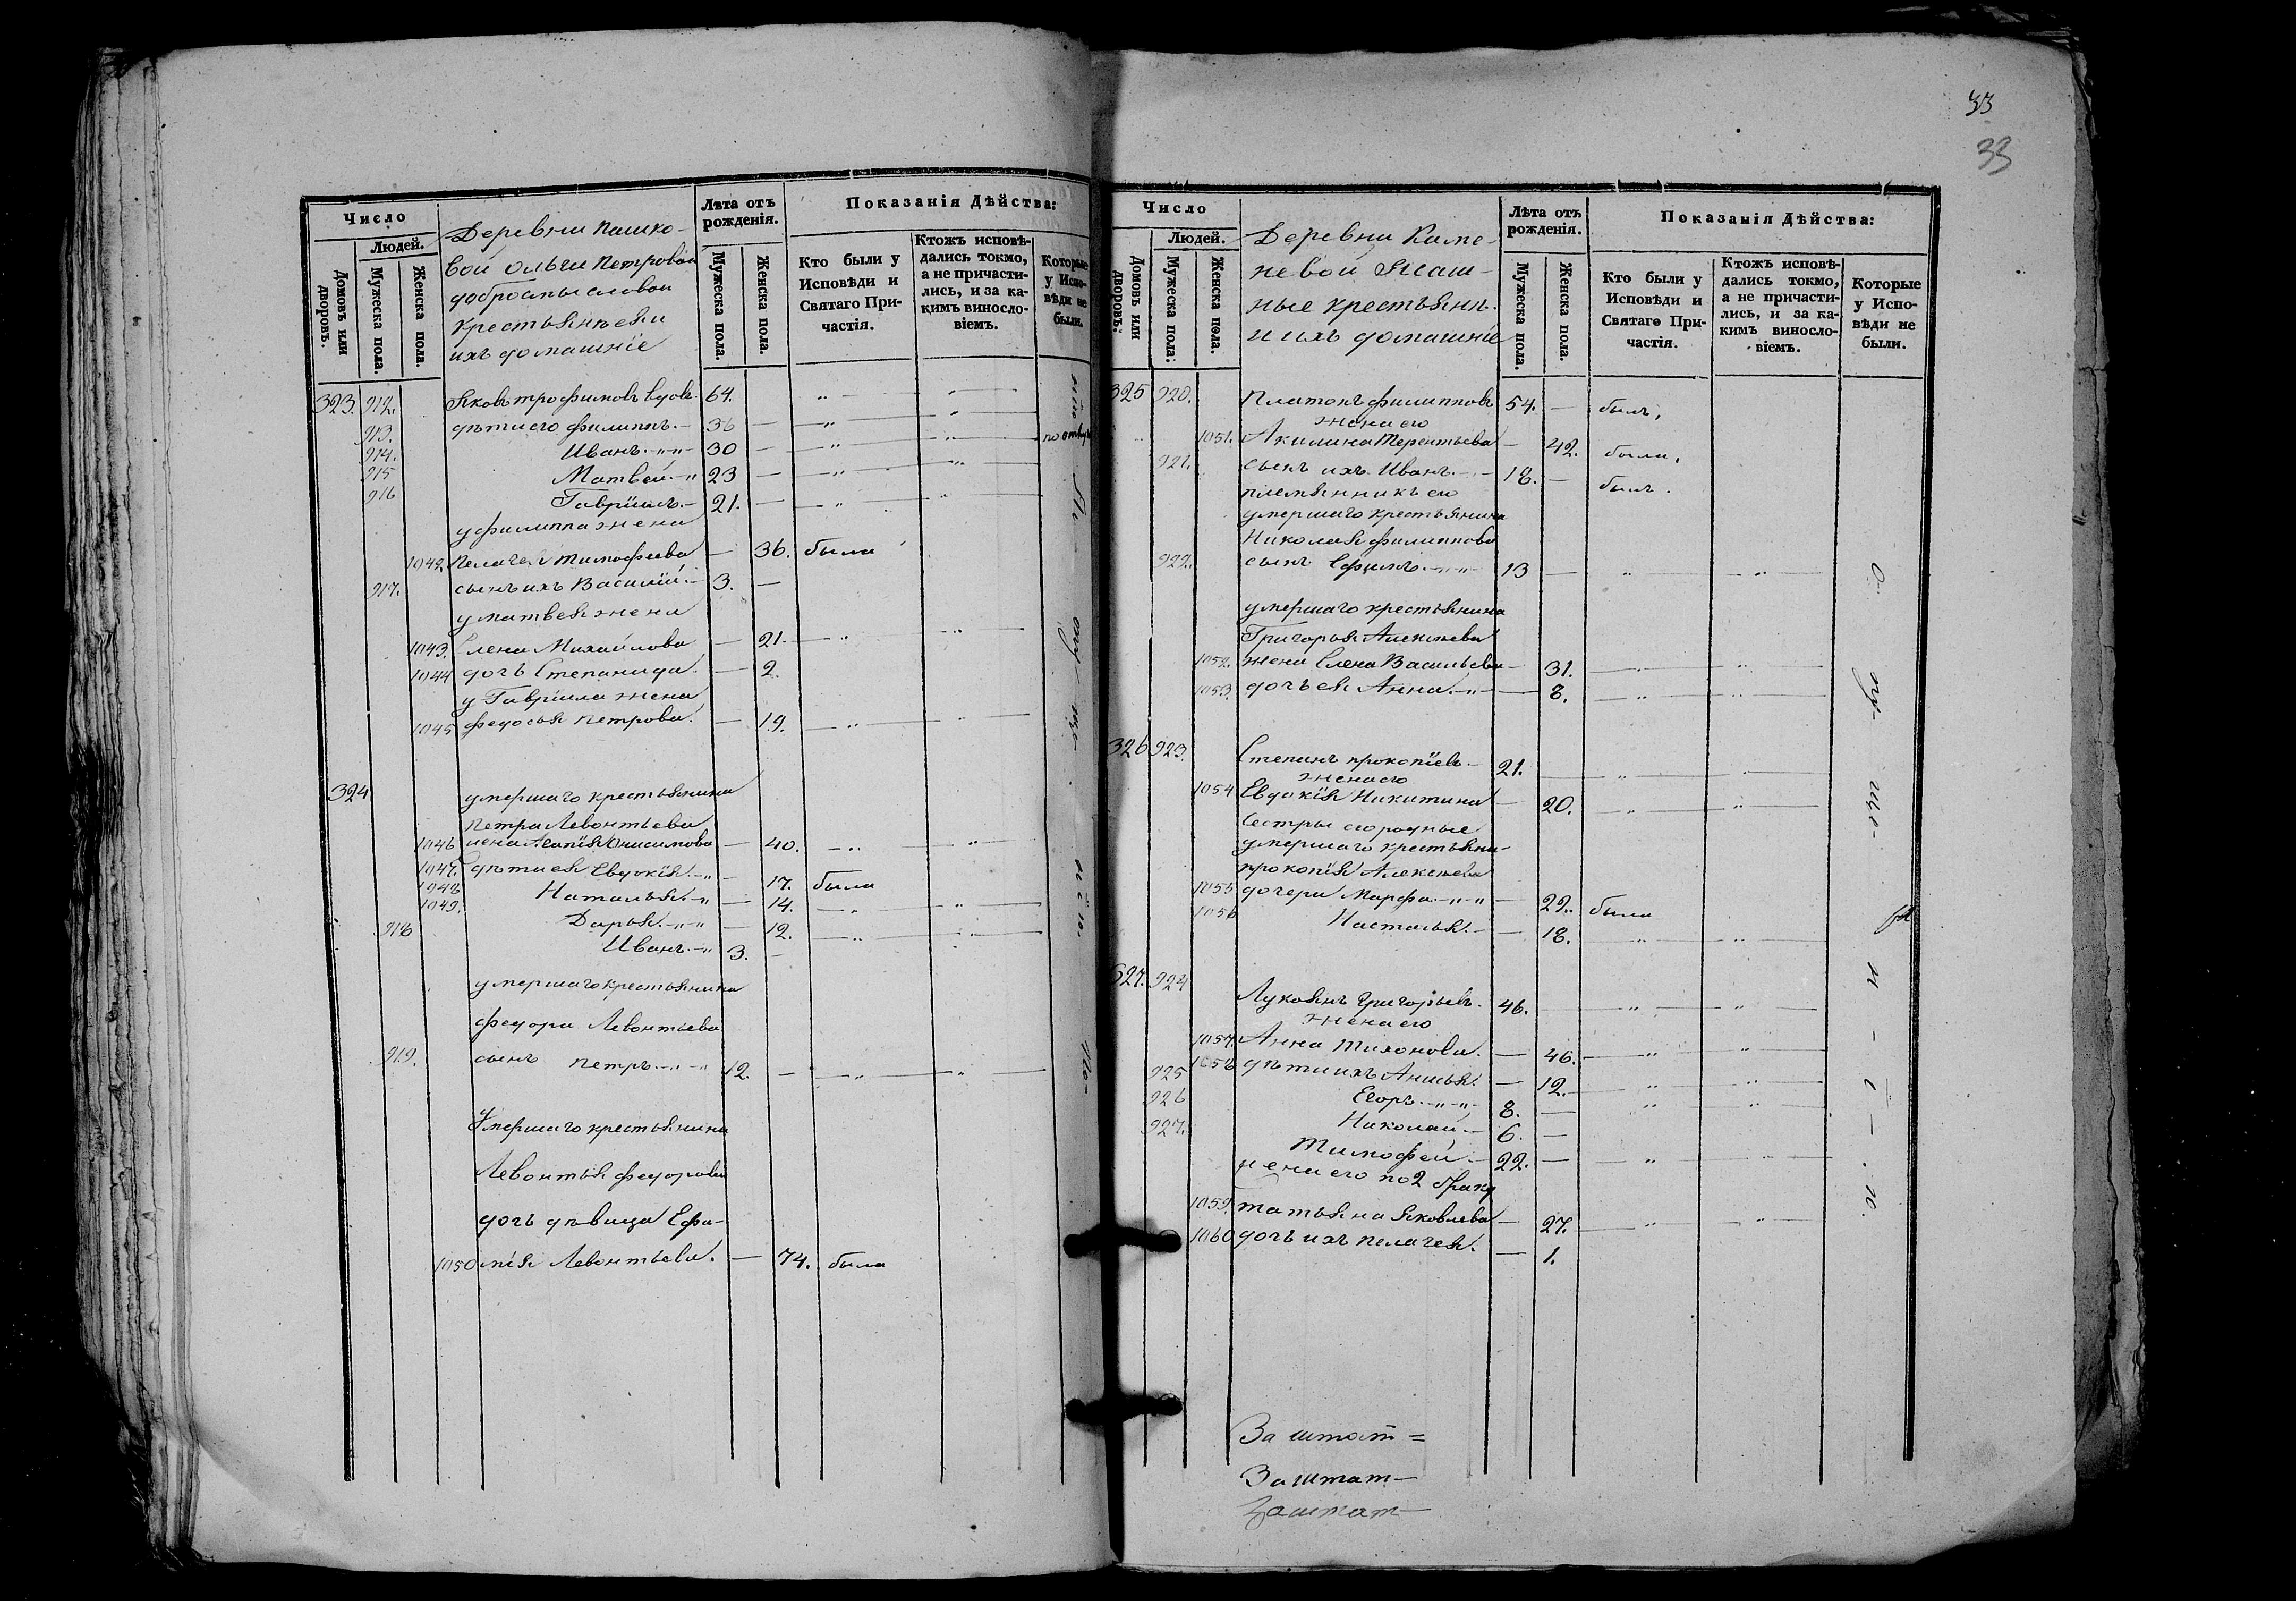 Число
Людей.
Домовъ или дворовъ.
Мужеска пола.
Женска пола.
Деревни Пашко-
вой Ольги Петровой
Добросмысловой
крестьянѣ и
ихъ домашніе
Лѣта отъ рожденія.
Мужеска пола.
Женска пола.
Показанія Дѣйства:
Кто были у Исповѣди и Святаго Причастія.
Ктожъ исповѣдались токмо, а не причастились, и за какимъ винословіемъ.
Которые у Исповѣди не были.
323. 912. Яковъ Трофимовъ вдовъ. 64.
913. дѣти его Филиппъ. — 36 —
914. Иванъ. — 30 —
915 Матвей. — 23 —
916 Гавріилъ. — 21. —
у Филиппа жена
1042 Пелагея Тимофеева — 36. была
917. сынъ ихъ Василій. — 3. —
у Матвея жена
1043. Елена Михайлова — 21.
1044 дочь Степанида. — 2.
у Гавріила жена
1045 Федосья Петрова. — 19.
324 умершаго крестьянина
Петра Левонтьева
1046 жена Агапія Онисимова — 40.
1047. дѣти ея Евдокія. — 17. была
1048 Наталья. — 14.
1049. Дарья. — 12.
918 Иванъ. — 3. —
умершаго крестьянина
Федора Левонтьева
919. сынъ Петръ. — 12. —
Умершаго крестьянина
Левонтья Федорова
дочь дѣвица Ефи-
1050 мія Левонтьева. — 74. была
33
33
Число
Людей.
Домовъ или дворовъ:
Мужеска пола:
Женска пола.
Деревни Каме-
невой Ясаш-
ные крестьянѣ
и ихъ домашніе
Лѣта отъ рожденія.
Мужеска пола.
Женска пола.
Показанія Дѣйства:
Кто были у Исповѣди и Святаго Причастія.
Ктожъ исповѣдались токмо, а не причастились, и за какимъ винословіемъ.
Которые у Исповѣди не были.
325 920. Платонъ Филипповъ 54. — былъ.
жена его
1051. Акилина Терентьева — 42. была.
921. сынъ ихъ Иванъ. — 18. — былъ.
племянникъ его
умершаго крестьянина
Николая Филиппова
922. сынъ Ефимъ. — 13 —
умершаго крестьянина
Григорья Алексѣева
1052. жена Елена Васильева — 31.
1053. дочь ея Анна. — 8.
326 923. Степанъ Прокопіевъ. — 21.
жена его
1054 Евдокія Никитина — 20.
Сестры сродные
умершаго крестьяни-
Прокопія Алексѣева
1055 дочери Марфа. — 22. была
1056 Насталья. — 18.
327. 924 Лукоянъ Григорьевъ. 46.
жена его
1057. Анна Тихонова. — 46.
1058 дѣти ихъ Анисья. — 12.
925 Егоръ. — 8. —
926 Николай. — 6. —
927. Тимофей. — 22. —
жена его по 2 браку
1059. Татьяна Яковлева — 27.
1060 дочь ихъ Пелагея. — 1.
За штат =
Заштат —
Заштат —